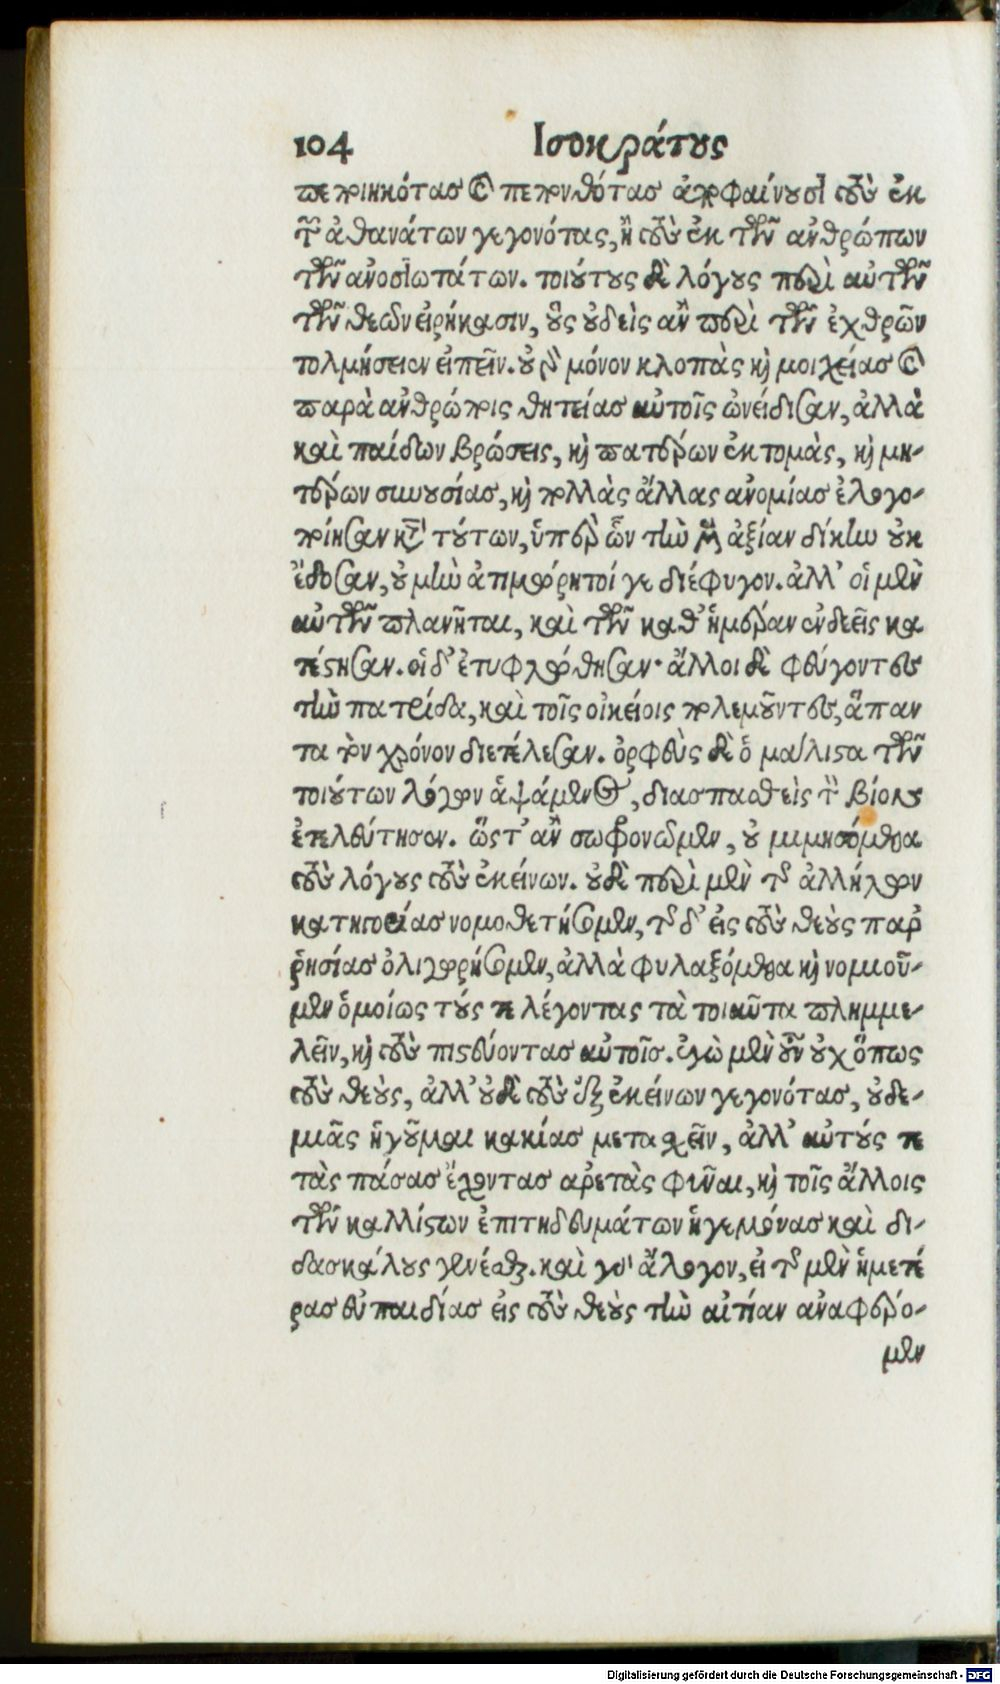 104 Ισοκράτους
πεποιηκότας καὶ πεπονθότας ἀποφαίνουσι τοὺς ἐκ
τῶν ἀθανάτων γεγονότας, ἢ τοὺς ἐκ τῶν ἀνθρώπων
τῶν ἀνοσιωτάτων. τοιούτους δὲ λόγους περὶ αὐτῶν
τῶν θεῶν εἰρήκασιν, οὓς οὐδεὶς ἂν περὶ τῶν ἐχθρῶν
τολμήσειεν εἰπεῖν. οὐ γὰρ μόνον κλοπὰς καὶ μοιχείας καὶ
παρὰ ἀνθρώποις θητείας αὐτοῖς ὠνείδισαν, ἀλλὰ
καὶ παίδων βρώσεις, καὶ πατέρων ἐκτομὰς, καὶ μη-
τέρων συνουσίας, καὶ πολλὰς ἄλλας ἀνομίας ἐλογο-
ποίησαν κατὰ τούτων, ὑπὲρ ὧν τὴν μὲν ἀξίαν δίκην οὐκ
ἔδοσαν, οὐ μὴν ἀτιμώρητοί γε διέφυγον. ἀλλ' οἱ μὲν
αὐτῶν πλανῆται, καὶ τῶν καθ' ἡμέραν ἐνδεεῖς κα
τέστησαν. οἱ δ' ἐτυφλώθησαν· ἄλλοι δὲ φεύγοντες
τὴν πατρίδα, καὶ τοῖς οἰκείοις πολεμοῦντες, ἅπαν
τα τὸν χρόνον διετέλεσαν. ὀρφεὺς δὲ ὁ μάλιστα τῶν
τοιούτων λόγων ἁψάμενος, διασπασθεὶς τὸν βίον
ἐτελεύτησεν. ὥστ' ἂν σωφρονῶμεν, οὐ μιμησόμεθα
τοὺς λόγους τοὺς ἐκείνων. οὐδὲ περὶ μὲν τῆς ἀλλήλων
κατηγορίας νομοθετήσομεν, τῆς δ' εἰς τοὺς θεοὺς παῤ
ῥησίας ὀλιγωρήσομεν, ἀλλὰ φυλαξόμεθα καὶ νομιοῦ-
μεν ὁμοίως τούς τε λέγοντας τὰ τοιαῦτα πλημμε-
λεῖν, καὶ τοὺς πιστεύοντας αὐτοῖς. ἐγὼ μὲν οὖν οὐχ ὅπως
τοὺς θεοὺς, ἀλλ' οὐδὲ τοὺς ἐξ ἐκείνων γεγονότας, οὐδε-
μιᾶς ἡγοῦμαι κακίας μετασχεῖν, ἀλλ' αὐτούς τε
τὰς πάσας ἔχοντας ἀρετὰς φῦναι, καὶ τοῖς ἄλλοις
τῶν καλλίστων ἐπιτηδευμάτων ἡγεμόνας καὶ δι-
δασκάλους γενέσθαι. καὶ γὰρ ἄλογον, εἰ τῆς μὲν ἡμετέ
ρας εὐπαιδίας εἰς τοὺς θεοὺς τὴν αἰτίαν ἀναφέρο-
μεν
Digitalisierung gefördert durch die Deutsche Forschungsgemeinschaft - DFG